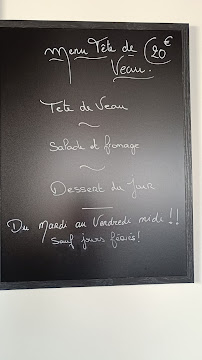 Menu Tête de Veau. 20€
Tete de Veau
~
Salade et fromage
~
Dessert du Jour
Du Mardi au Vendredi midi !!
Sauf jours fériés!